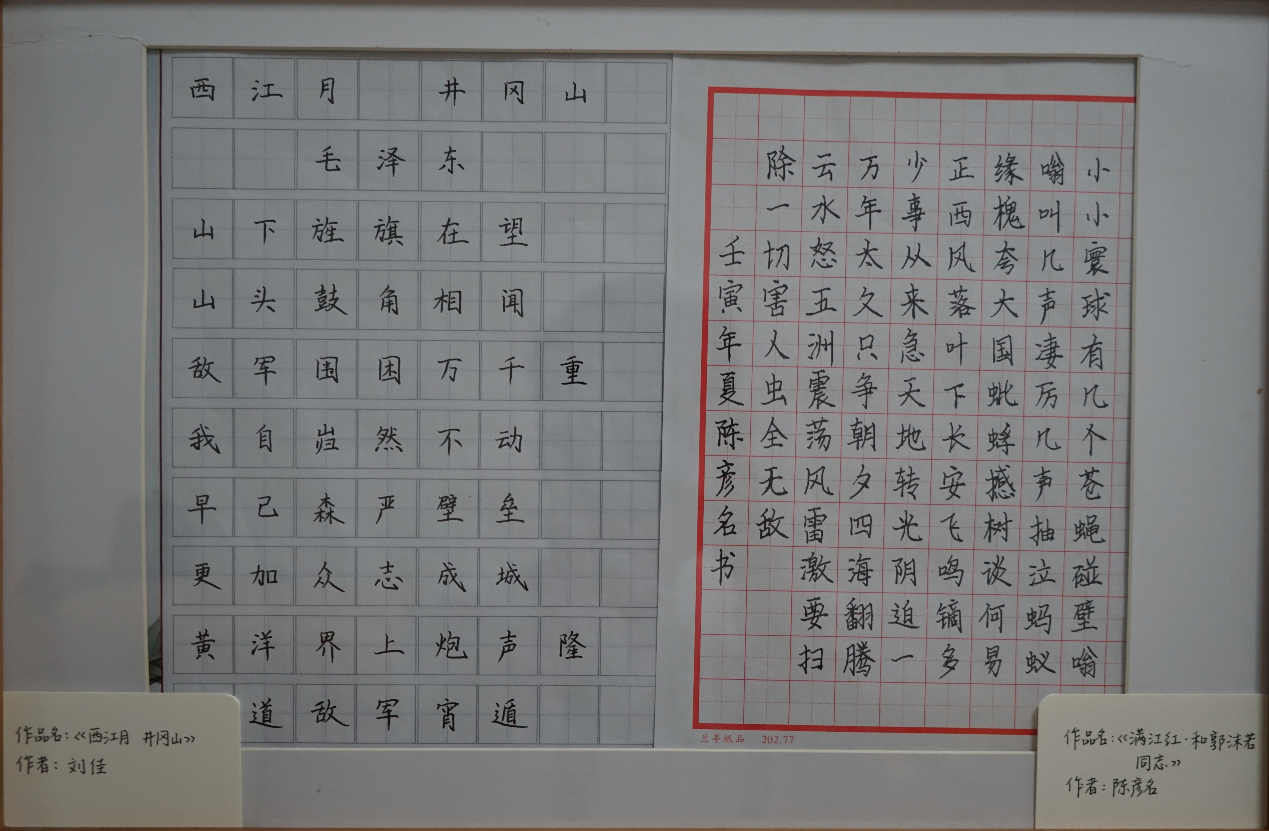 西江月 井冈山
毛泽东
山下旌旗在望
山头鼓角相闻
敌军围困万千重
我自岿然不动
早已森严壁垒
更加众志成城
黄洋界上炮声隆
道敌军宵遁
小小寰球有几个苍蝇碰壁嗡
嗡叫几声凄厉几声抽泣蚂蚁
缘槐夸大国蚍蜉撼树谈何易
正西风落叶下长安飞鸣镝多
少事从来急天地转光阴迫一
万年太久只争朝夕四海翻腾
云水怒五洲震荡风雷激要扫
除一切害人虫全无敌
壬寅年夏陈彦名书
兰亭纸品 202.77
作品名:《西江月 井冈山》
作者:刘佳
作品名:《满江红·和郭沫若
同志》
作者:陈彦名